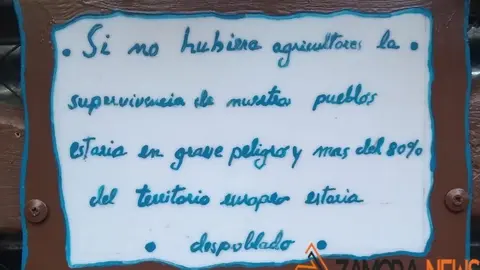 . Si no hubiera agricultores la .
supervivencia de nuestros pueblos
estaria en grave peligro y mas del 80%
del territorio europeo estaria
. despoblado .
ZAMORA NEWS